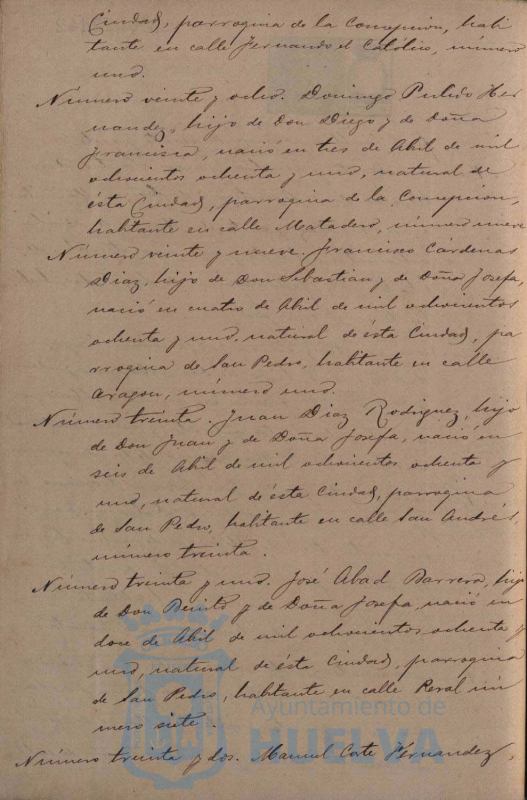 Ciudad, parroquia de la Concepcion, habi
tante en calle Fernando el Católico, número
uno.
Número veinte y ocho. Domingo Pulido Her
nandez, hijo de Don Diego y de Doña
Francisca, nació en tres de Abril de mil
ochocientos ochenta y uno, natural de
ésta Ciudad, parroquia de la Concepcion,
habitante en calle Matadero, número nueve
Número veinte y nueve. Francisco Cárdenas
Diaz, hijo de Don Sebastian y de Doña Josefa,
nació en cuatro de Abril de mil ochocientos
ochenta y uno, natural de ésta Ciudad, pa
rroquia de San Pedro, habitante en calle
Aragon, número uno.
Número treinta. Juan Diaz Rodriguez, hijo
de Don Juan y de Doña Josefa, nació en
seis de Abril de mil ochocientos ochenta y
uno, natural de ésta Ciudad, parroquia
de San Pedro, habitante en calle San Andrés,
número treinta.
Número treinta y uno. José Abad Barrero, hijo
de Don Benito y de Doña Josefa, nació en
doce de Abril de mil ochocientos ochenta y
uno, natural de ésta Ciudad, parroquia
de San Pedro, habitante en calle Peral nú
mero siete.
Ayuntamiento de
HUELVA
Número treinta y dos. Manuel Corte Hernandez,